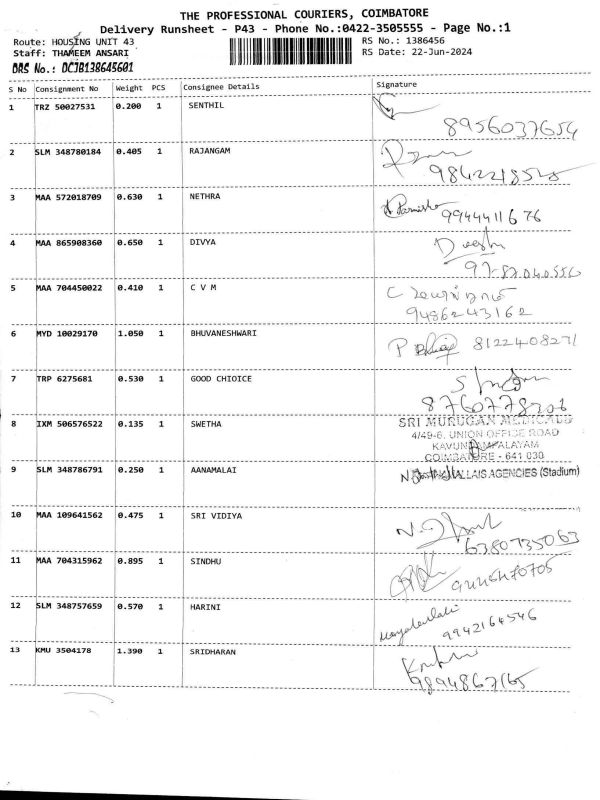 THE PROFESSIONAL COURIERS, COIMBATORE
Delivery Runsheet - P43 - Phone No.:0422-3505555 - Page No.:1
Route: HOUSING UNIT 43 RS No.: 1386456
Staff: THAMEEM ANSARI RS Date: 22-Jun-2024
DRS No.: DCJB138645601
S No Consignment No Weight PCS Consignee Details Signature
1 TRZ 50027531 0.200 1 SENTHIL
8956037654
2 SLM 348780184 0.405 1 RAJANGAM
3 MAA 572018709 0.630 1 NETHRA
9944411676
4 MAA 865908360 0.650 1 DIVYA
9787040556
5 MAA 704450022 0.410 1 C V M
9486243162
6 MYD 10029170 1.050 1 BHUVANESHWARI
8122408271
7 TRP 6275681 0.530 1 GOOD CHIOICE
8 IXM 506576522 0.135 1 SWETHA
SRI MURUGAN MEDICALS
4/49-6, UNION OFFICE ROAD
COIMBATORE - 641 030
9 SLM 348786791 0.250 1 AANAMALAI
AGENCIES (Stadium)
10 MAA 109641562 0.475 1 SRI VIDIYA
6380735063
11 MAA 704315962 0.895 1 SINDHU
12 SLM 348757659 0.570 1 HARINI
9942164546
13 KMU 3504178 1.390 1 SRIDHARAN
9894867165